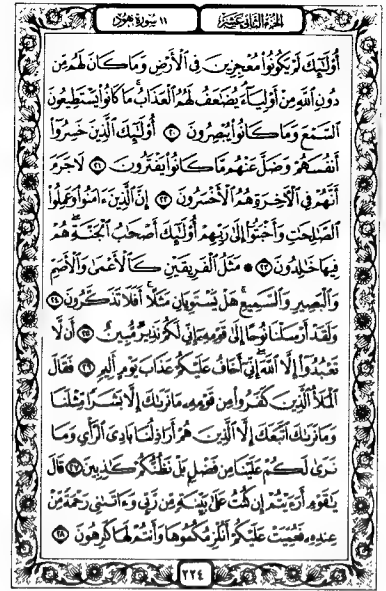 الجزء الثاني عشر
١١ سورة هود
أُوْلَٰٓئِكَ لَمْ يَكُونُوا۟ مُعْجِزِينَ فِى ٱلْأَرْضِ وَمَا كَانَ لَهُم مِّن
دُونِ ٱللَّهِ مِنْ أَوْلِيَآءَ يُضَٰعَفُ لَهُمُ ٱلْعَذَابُ مَا كَانُوا۟ يَسْتَطِيعُونَ
ٱلسَّمْعَ وَمَا كَانُوا۟ يُبْصِرُونَ ٢٠ أُو۟لَٰٓئِكَ ٱلَّذِينَ خَسِرُوٓا۟
أَنفُسَهُمْ وَضَلَّ عَنْهُم مَّا كَانُوا۟ يَفْتَرُونَ ٢١ لَا جَرَمَ
أَنَّهُمْ فِى ٱلْءَاخِرَةِ هُمُ ٱلْأَخْسَرُونَ ٢٢ إِنَّ ٱلَّذِينَ ءَامَنُوا۟ وَعَمِلُوا۟
ٱلصَّٰلِحَٰتِ وَأَخْبَتُوٓا۟ إِلَىٰ رَبِّهِمْ أُو۟لَٰٓئِكَ أَصْحَٰبُ ٱلْجَنَّةِ هُمْ
فِيهَا خَٰلِدُونَ ٢٣ ۞ مَثَلُ ٱلْفَرِيقَيْنِ كَٱلْأَعْمَىٰ وَٱلْأَصَمِّ
وَٱلْبَصِيرِ وَٱلسَّمِيعِ هَلْ يَسْتَوِيَانِ مَثَلًا أَفَلَا تَذَكَّرُونَ ٢٤
وَلَقَدْ أَرْسَلْنَا نُوحًا إِلَىٰ قَوْمِهِۦٓ إِنِّى لَكُمْ نَذِيرٌ مُّبِينٌ ٢٥ أَن لَّا
تَعْبُدُوٓا۟ إِلَّا ٱللَّهَ إِنِّىٓ أَخَافُ عَلَيْكُمْ عَذَابَ يَوْمٍ أَلِيمٍ ٢٦ فَقَالَ
ٱلْمَلَأُ ٱلَّذِينَ كَفَرُوا۟ مِن قَوْمِهِۦ مَا نَرَىٰكَ إِلَّا بَشَرًا مِّثْلَنَا
وَمَا نَرَىٰكَ ٱتَّبَعَكَ إِلَّا ٱلَّذِينَ هُمْ أَرَاذِلُنَا بَادِىَ ٱلرَّأْىِ وَمَا
نَرَىٰ لَكُمْ عَلَيْنَا مِن فَضْلٍۭ بَلْ نَظُنُّكُمْ كَٰذِبِينَ ٢٧ قَالَ
يَٰقَوْمِ أَرَءَيْتُمْ إِن كُنتُ عَلَىٰ بَيِّنَةٍ مِّن رَّبِّى وَءَاتَىٰنِى رَحْمَةً مِّنْ
عِندِهِۦ فَعُمِّيَتْ عَلَيْكُمْ أَنُلْزِمُكُمُوهَا وَأَنتُمْ لَهَا كَٰرِهُونَ ٢٨
٢٢٤